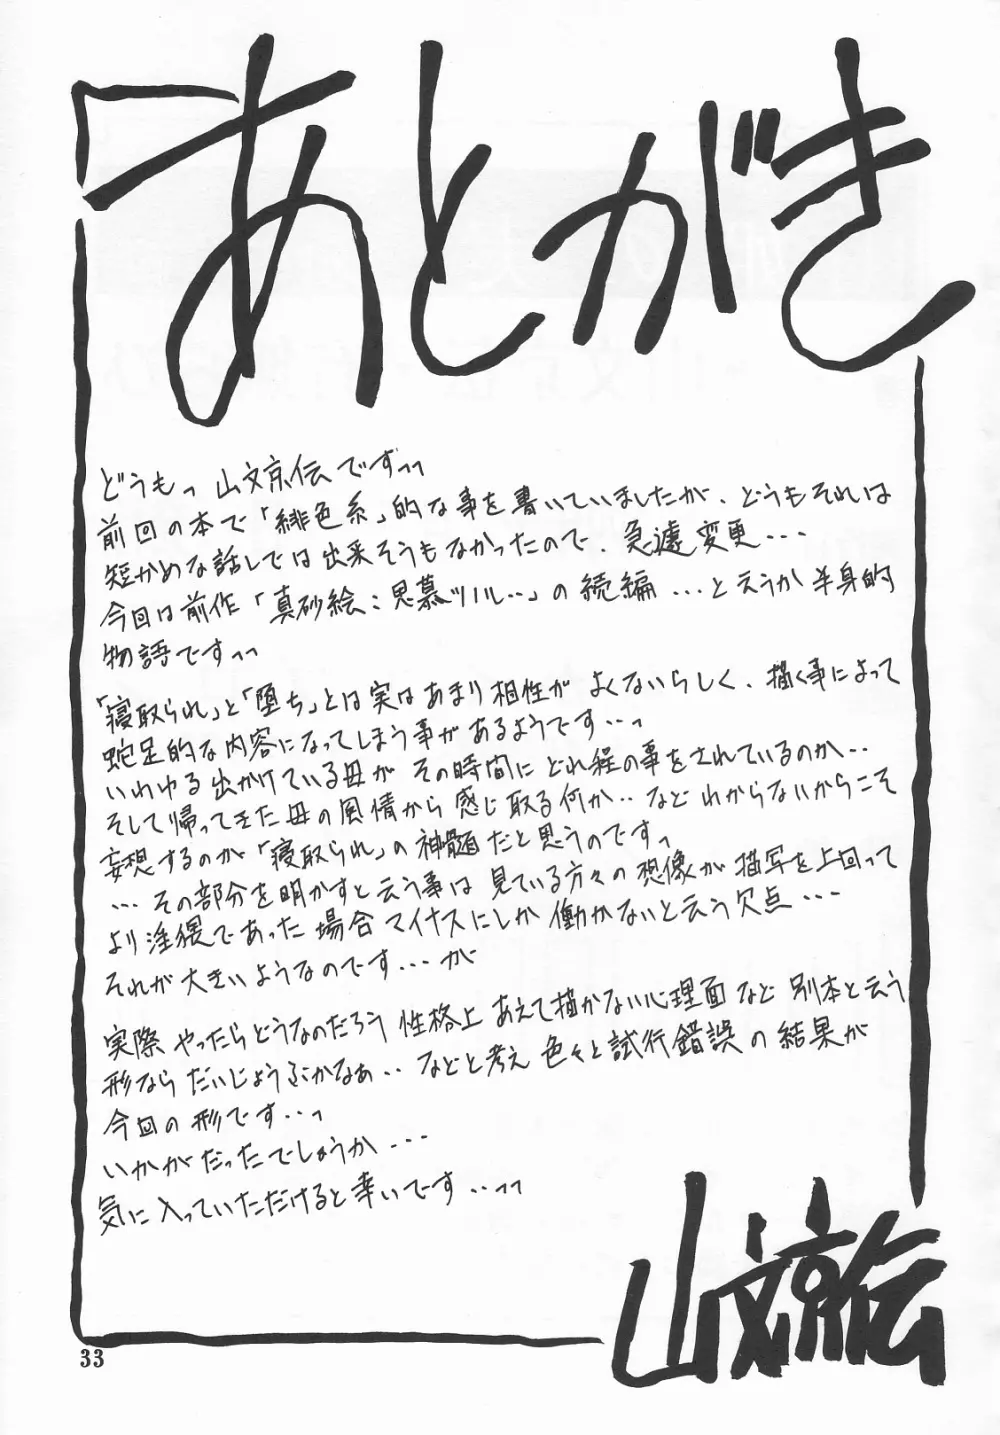 あとがき
どうもっ 山文京伝ですっっ
前回の本で「緋色系」的な事を書いていましたが、どうもそれは
短かめな話しでは出来そうもなかったので、急遽変更・・・
今回は前作「真砂絵:思慕ツノル・・」の続編・・・と云うか半身的
物語ですっっ
「寝取られ」と「堕ち」とは実はあまり相性が よくないらしく、描く事によって
蛇足的な内容になってしまう事があるようです・・っ
いわゆる出かけている母が その時間に どれ程の事をされているのか・・
そして帰ってきた母の風情から感じ取る何か・・などわからないからこそ
妄想するのが「寝取られ」の神髄だと思うのですっ
・・・その部分を明かすと云う事は 見ている方々の想像が描写を上回って
より淫猥であった場合マイナスにしか働かないと云う欠点・・・
それが大きいようなのです・・・が
実際やったらどうなのだろう 性格上 あえて描かない心理面など別本と云う
形なら だいじょうぶかなぁ・・などと考え 色々と試行錯誤の結果が
今回の形です・・っ
いかがだったでしょうか・・・
気に入っていただけると幸いです・・っっ
山文京伝
33